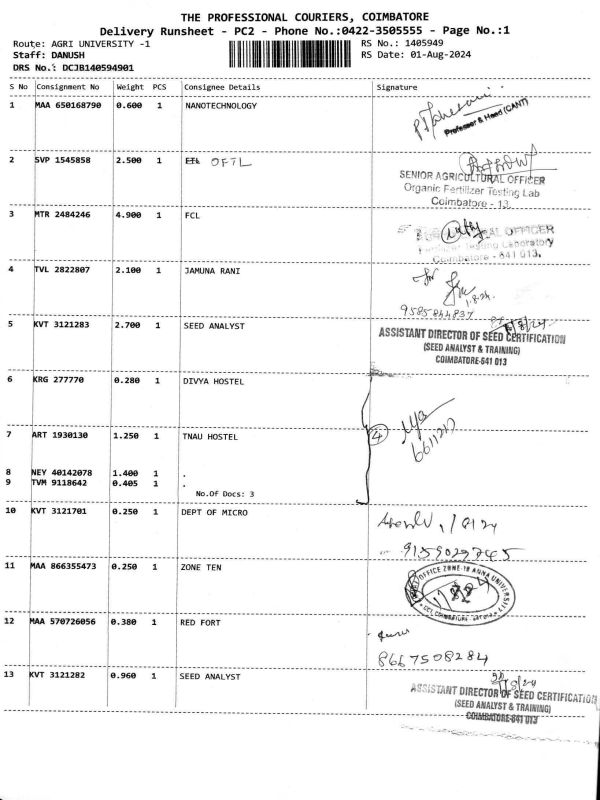 THE PROFESSIONAL COURIERS, COIMBATORE
Delivery Runsheet - PC2 - Phone No.:0422-3505555 - Page No.:1
Route: AGRI UNIVERSITY -1 RS No.: 1405949
Staff: DANUSH RS Date: 01-Aug-2024
DRS No.: DCJB140594901
S No Consignment No Weight PCS Consignee Details Signature
1 MAA 650168790 0.600 1 NANOTECHNOLOGY
Professor & Head (CANT)
2 SVP 1545858 2.500 1 OFTL
SENIOR AGRICULTURAL OFFICER
Organic Fertilizer Testing Lab
Coimbatore - 13
3 MTR 2484246 4.900 1 FCL
OFFICER
Fertilizer Testing Laboratory
Coimbatore - 641 013.
4 TVL 2822807 2.100 1 JAMUNA RANI
for
1.8.24
9585844837
5 KVT 3121283 2.700 1 SEED ANALYST
ASSISTANT DIRECTOR OF SEED CERTIFICATION
(SEED ANALYST & TRAINING)
COIMBATORE-641 013
6 KRG 277770 0.280 1 DIVYA HOSTEL
7 ART 1930130 1.250 1 TNAU HOSTEL
4
8 NEY 40142078 1.400 1 .
9 TVM 9118642 0.405 1 .
No.Of Docs: 3
10 KVT 3121701 0.250 1 DEPT OF MICRO
9159029245
11 MAA 866355473 0.250 1 ZONE TEN
OFFICE ZONE-10 ANNA UNIVERSITY
12 MAA 570726056 0.380 1 RED FORT
8667508284
13 KVT 3121282 0.960 1 SEED ANALYST
ASSISTANT DIRECTOR OF SEED CERTIFICATION
(SEED ANALYST & TRAINING)
COIMBATORE-641 013